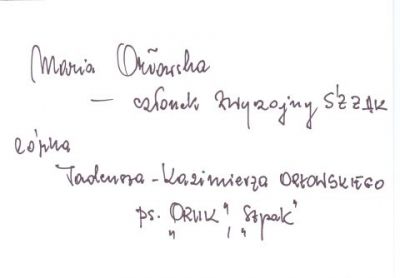 Maria Orłowska
— członek zwyczajny ŚZŻAK
córka
Tadeusza-Kazimierza ORŁOWSKIEGO
ps. „ORLIK", „Szpak"